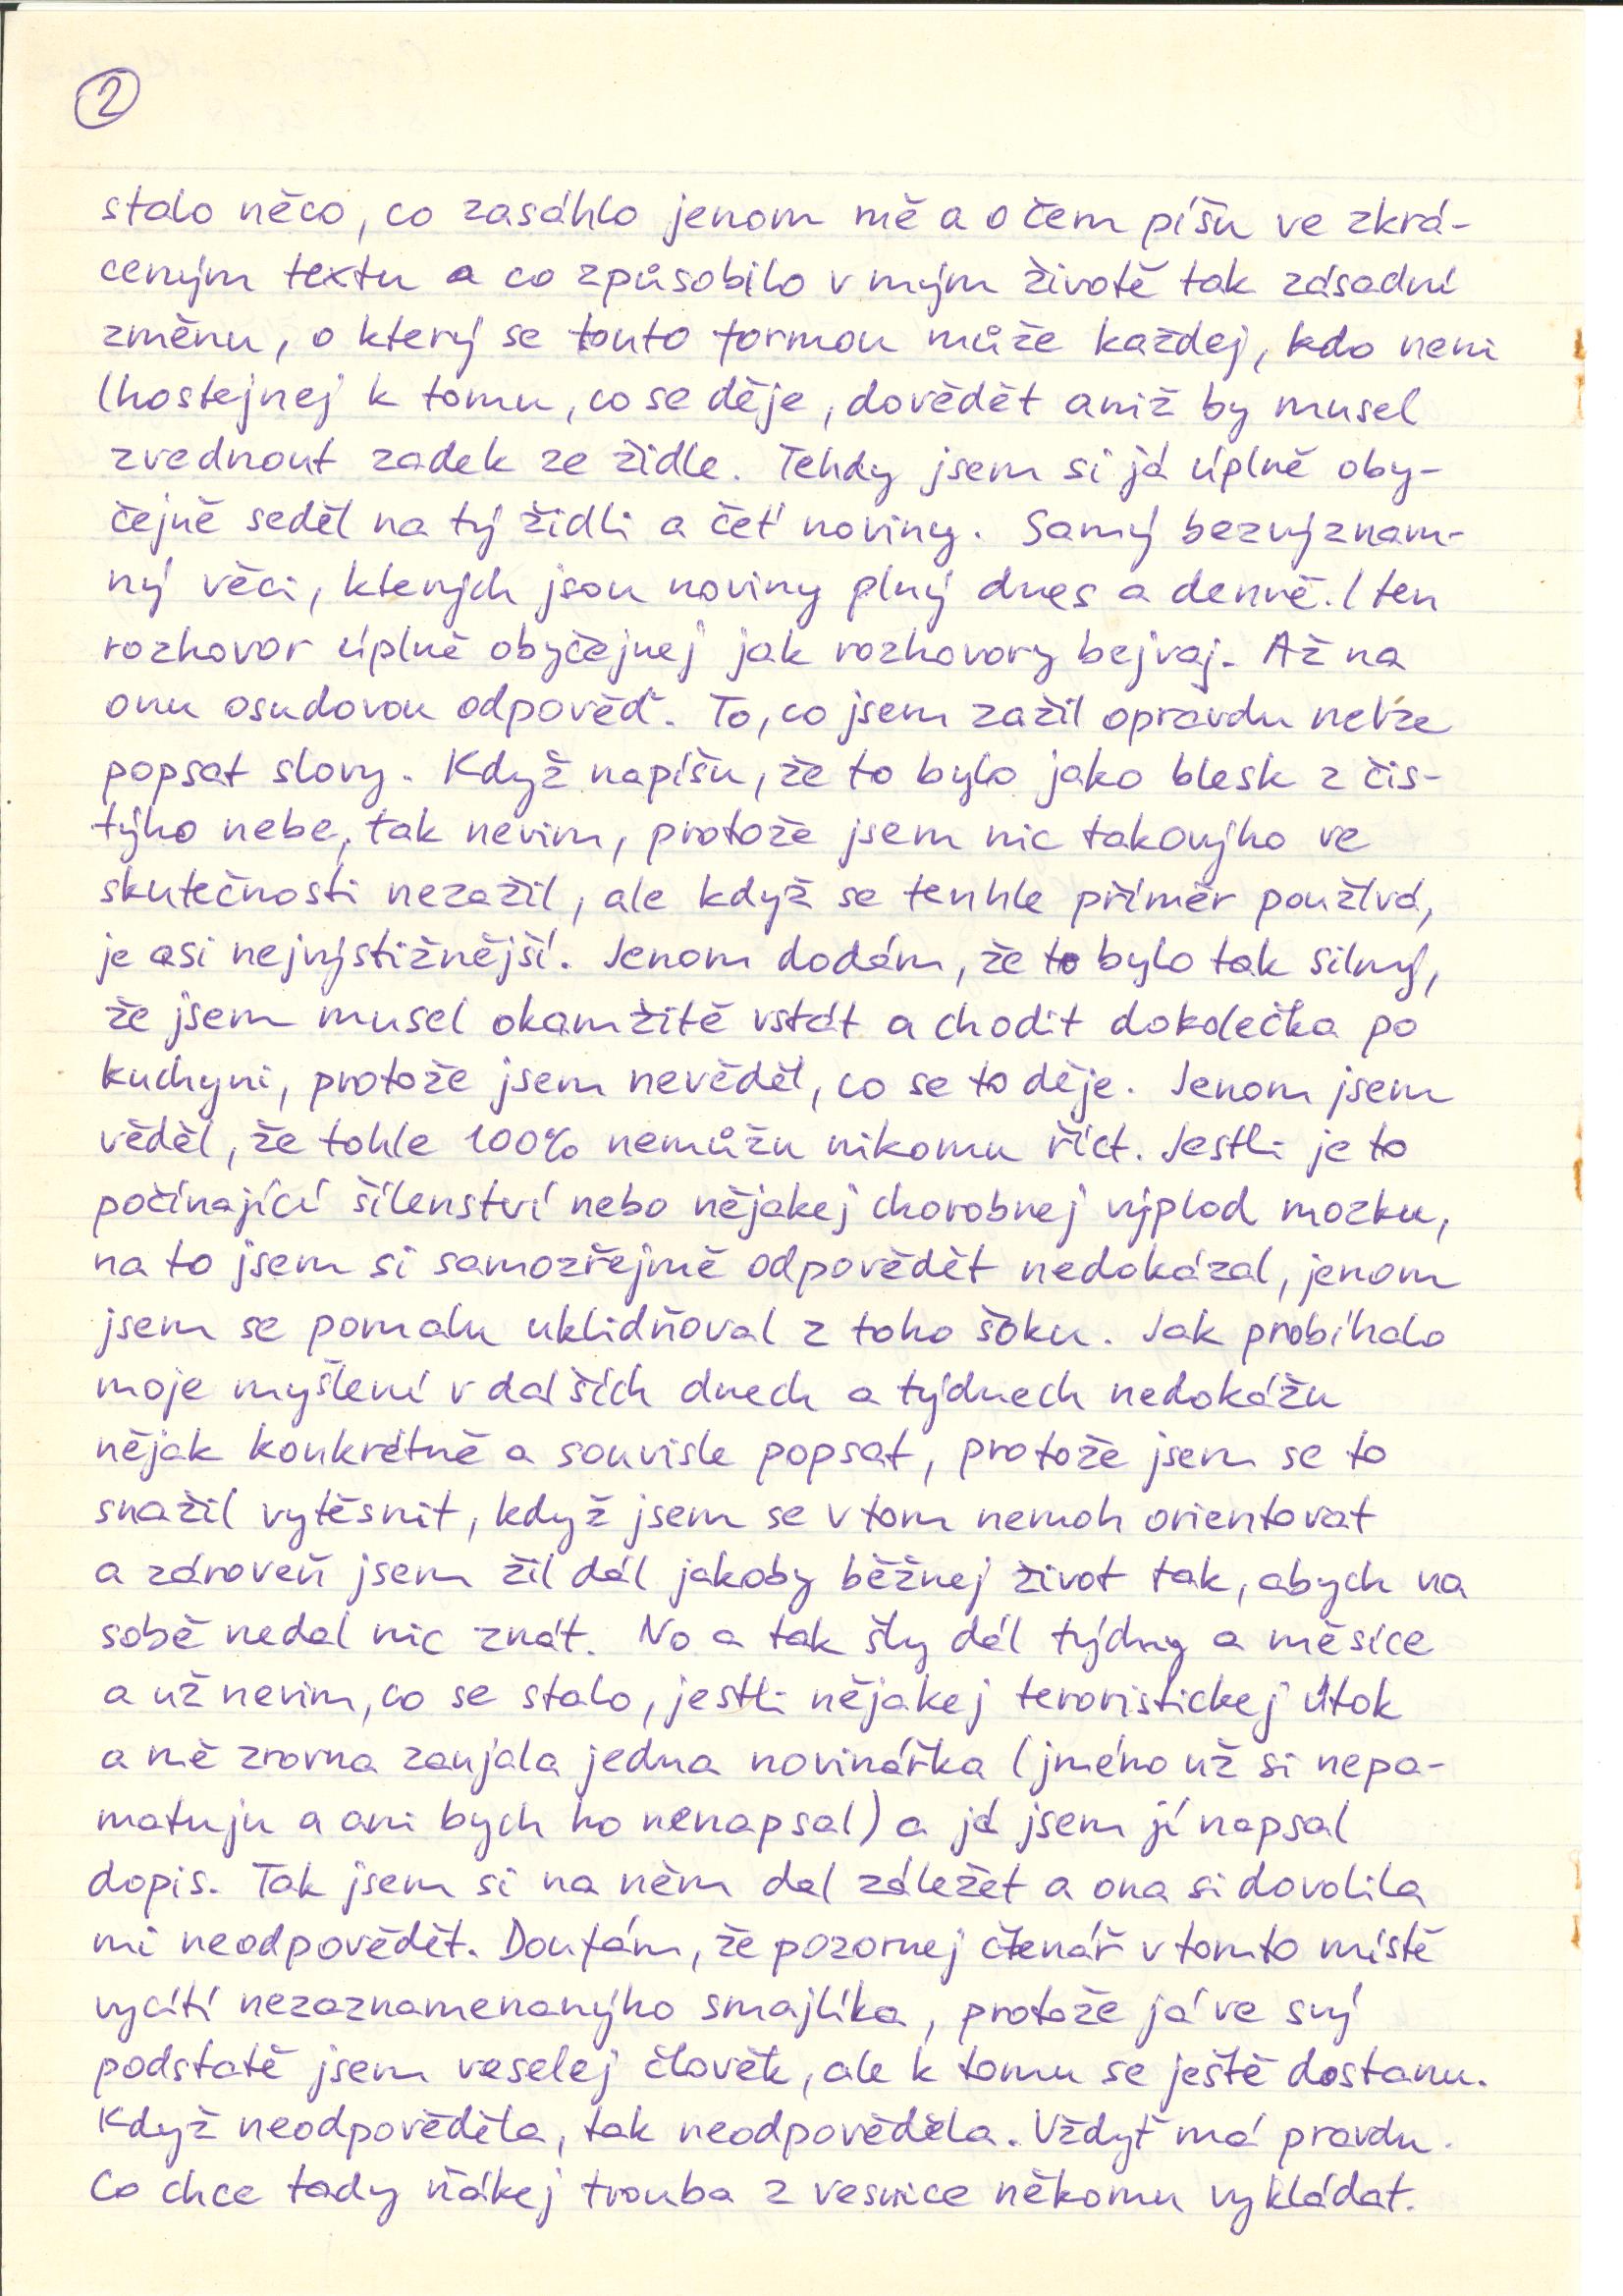 2
stalo něco, co zasáhlo jenom mě a o čem píšu ve zkrá-
ceným textu a co způsobilo v mým životě tak zásadní
změnu, o který se touto formou může každej, kdo neni
lhostejnej k tomu, co se děje, dovědět aniž by musel
zvednout zadek ze židle. Tehdy jsem si já úplně oby-
čejně seděl na tý židli a čet' noviny. Samý bezvýznam-
ný věci, kterých jsou noviny plný dnes a denně. I ten
rozhovor úplně obyčejnej jak rozhovory bejvaj. Až na
onu osudovou odpověď. To, co jsem zažil opravdu nelze
popsat slovy. Když napíšu, že to bylo jako blesk z čis-
týho nebe, tak nevim, protože jsem nic takovýho ve
skutečnosti nezažil, ale když se tenhle příměr použivá,
je asi nejvýstižnější. Jenom dodám, že to bylo tak silný,
že jsem musel okamžitě vstát a chodit dokolečka po
kuchyni, protože jsem nevěděl, co se to děje. Jenom jsem
věděl, že tohle 100% nemůžu nikomu říct. Jestli je to
počínající šílenství nebo nějakej chorobnej výplod mozku,
na to jsem si samozřejmě odpovědět nedokázal, jenom
jsem se pomalu uklidňoval z toho šoku. Jak probíhalo
moje myšlení v dalších dnech a týdnech nedokážu
nějak konkrétně a souvisle popsat, protože jsem se to
snažil vytěsnit, když jsem se v tom nemoh orientovat
a zároveň jsem žil dál jakoby běžnej život tak, abych na
sobě nedal nic znát. No a tak šly dál týdny a měsíce
a už nevim, co se stalo, jestli nějakej teroristickej útok
a mě zrovna zaujala jedna novinářka (jméno už si nepa-
matuju a ani bych ho nenapsal) a já jsem jí napsal
dopis. Tak jsem si na něm dal záležet a ona si dovolila
mi neodpovědět. Doufám, že pozornej čtenář v tomto místě
vycítí nezaznamenanýho smajlíka, protože já ve svý
podstatě jsem veselej člověk, ale k tomu se ještě dostanu.
Když neodpověděla, tak neodpověděla. Vždyť má pravdu.
Co chce tady ňákej trouba z vesnice někomu vykládat.